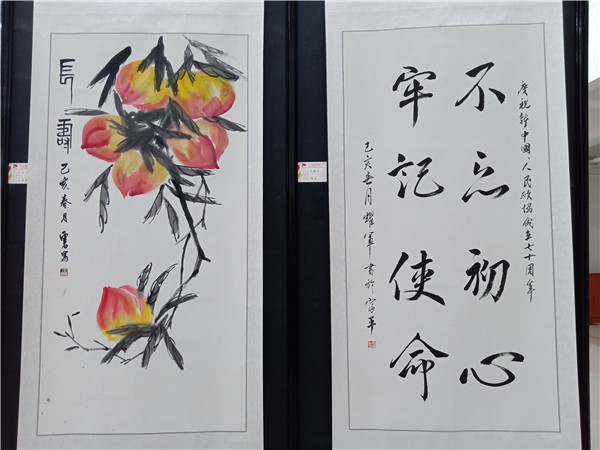 長壽
己亥春月
不忘初心
牢记使命
庆祝新中國、人民政協成立七十周年
己亥春月耀军书於家平